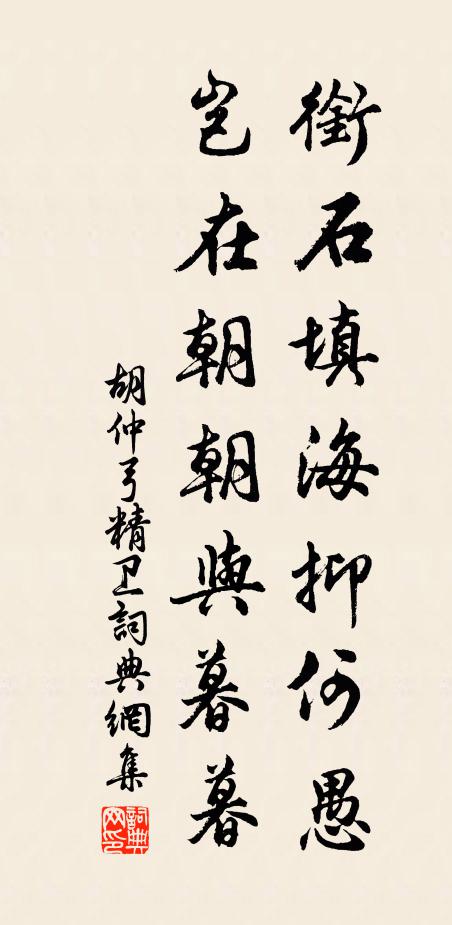 銜石填海抑何愚
豈在朝朝與暮暮
胡仲弓精卫詞典網集
詞典网印